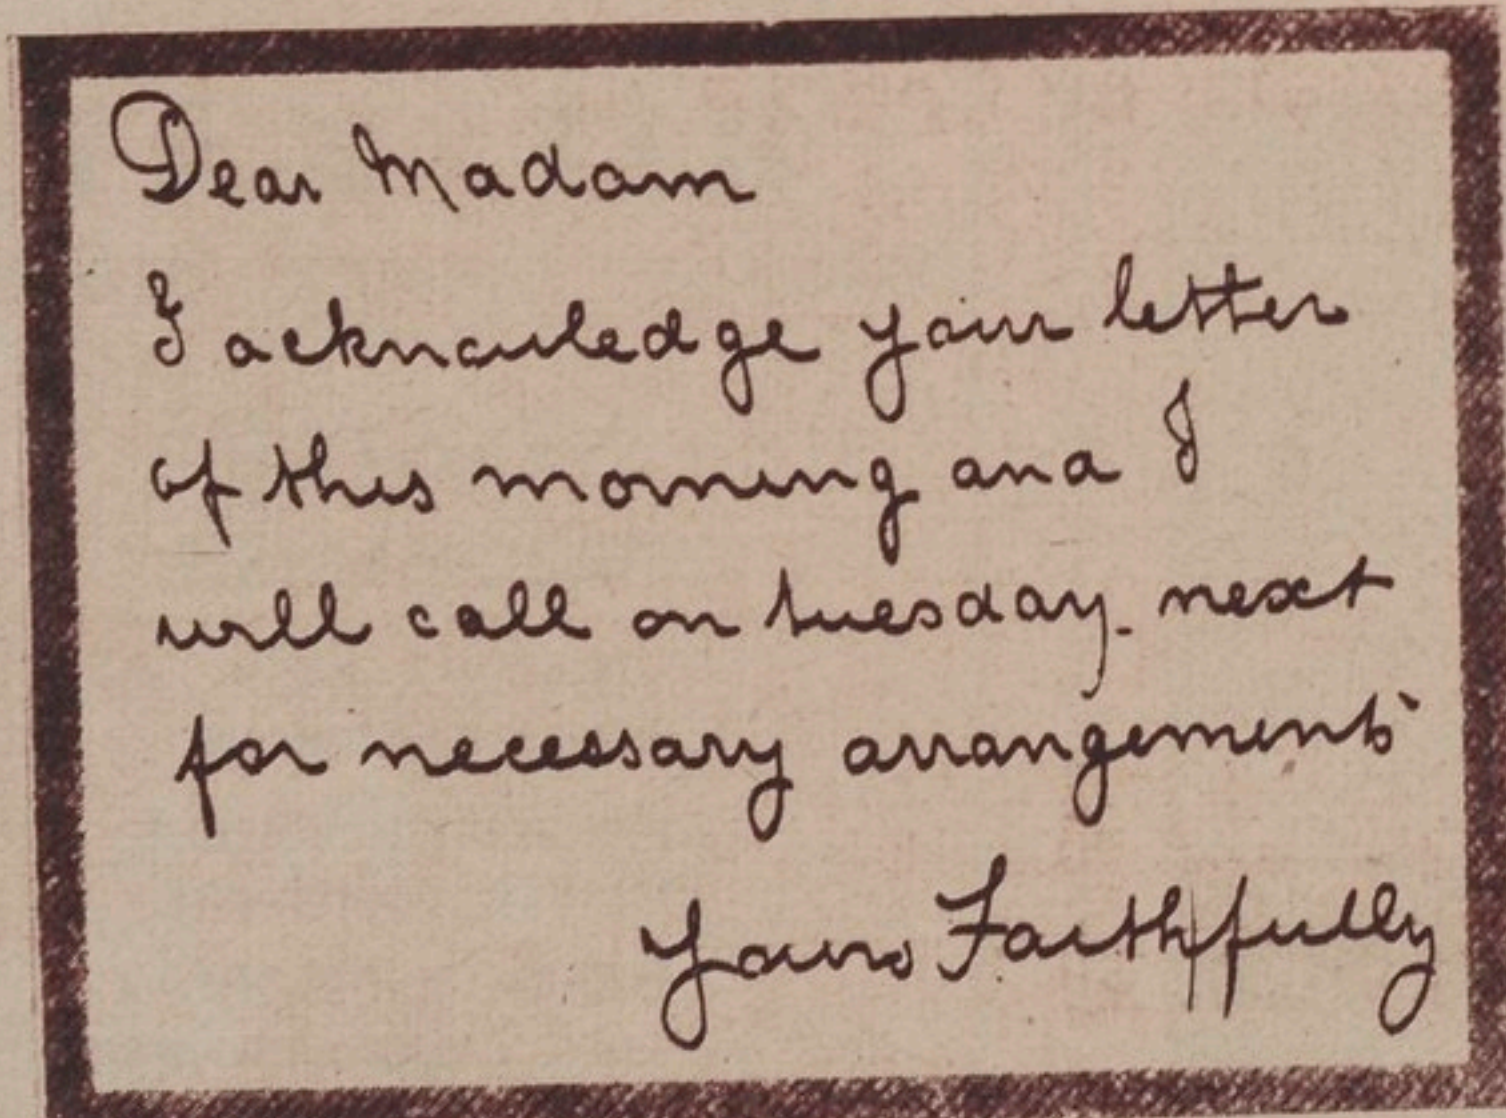 Dear Madam
I acknowledge your letter
of this morning and I
will call on tuesday next
for necessary arrangements
Yours Faithfully